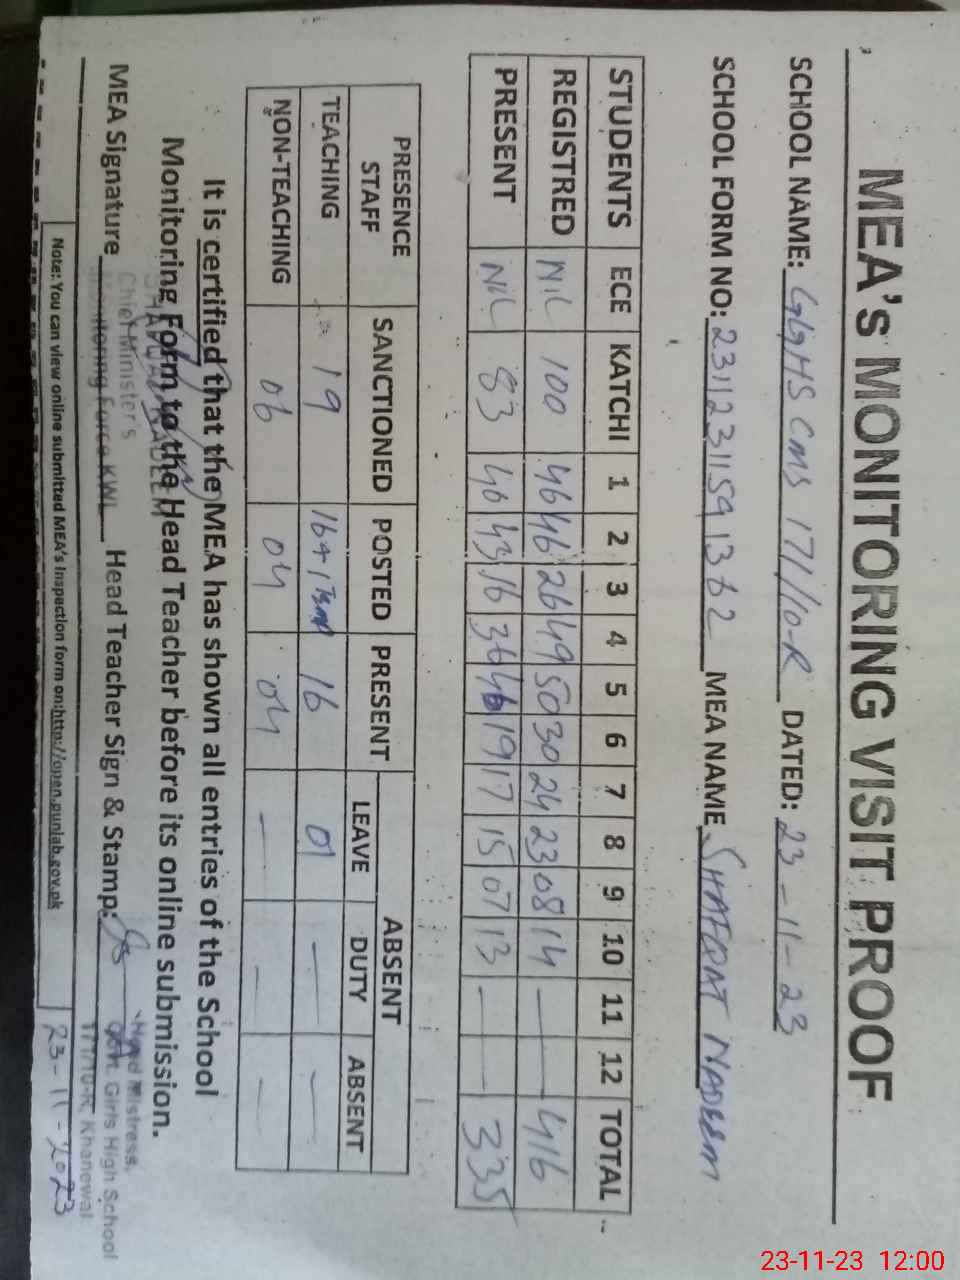 MEA's MONITORING VISIT PROOF
SCHOOL NAME: GGHS CMS 171/10-R DATED: 23-11-23
SCHOOL FORM NO: 23112311591362 MEA NAME SHAFQAT NADEEM
STUDENTS ECE KATCHI 1 2 3 4 5 6 7 8 9 10 11 12 TOTAL
REGISTRED NIL 100 46 46 26 49 50 30 24 23 08 14 — — 416
PRESENT NIL 83 40 43 16 36 46 19 17 15 07 13 — — 335
PRESENCE STAFF SANCTIONED POSTED PRESENT ABSENT
LEAVE DUTY ABSENT
TEACHING 19 16+1 Temp 16 01 — —
NON-TEACHING 06 04 04 — — —
It is certified that the MEA has shown all entries of the School
Monitoring Form to the Head Teacher before its online submission.
SHAFQAT NADEEM
Chief Minister's
Monitoring Force KWL
MEA Signature Head Teacher Sign & Stamp:
Head Mistress,
Govt. Girls High School
171/10-R, Khanewal
Note: You can view online submitted MEA's Inspection form on:http://open.punjab.gov.pk
23-11-2023
23-11-23 12:00